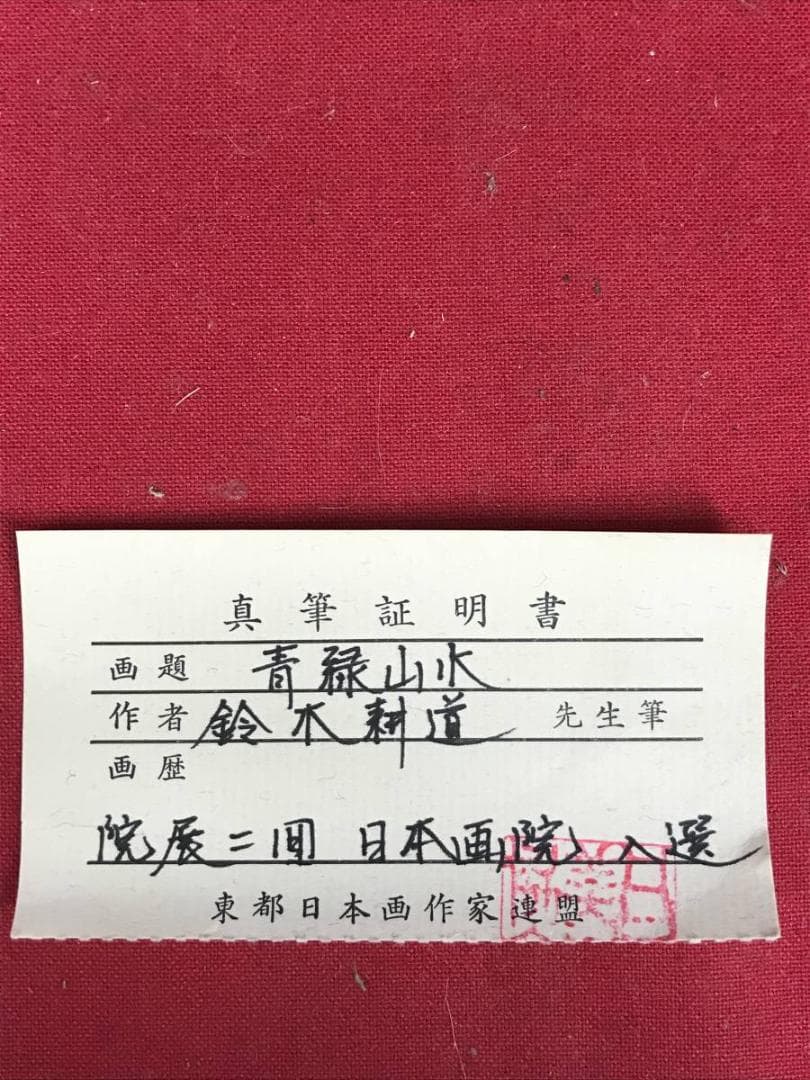 真筆証明書
画題 青緑山水
作者 鈴木耕道 先生筆
画歴
院展二回 日本画院入選
東都日本画作家連盟